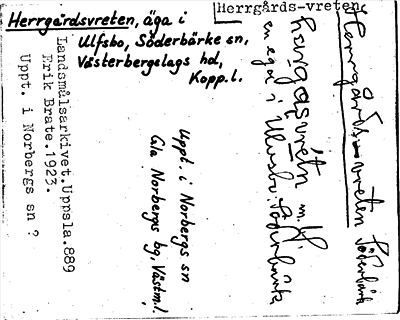 Herrgårds-vreten
Herrgårdsvreten, äga i
Ulfsbo, Söderbärke sn,
Västerbergslags hd,
Kopp.l.
Uppt. i Norbergs sn
Gla Norbergs bg, Västml.
Landsmålsarkivet.Uppsala.889
Erik Brate.1923.
Uppt. i Norbergs sn ?
Herrgårds-vreten Söderbärke
en ega i Ulvsbo Söderbärk